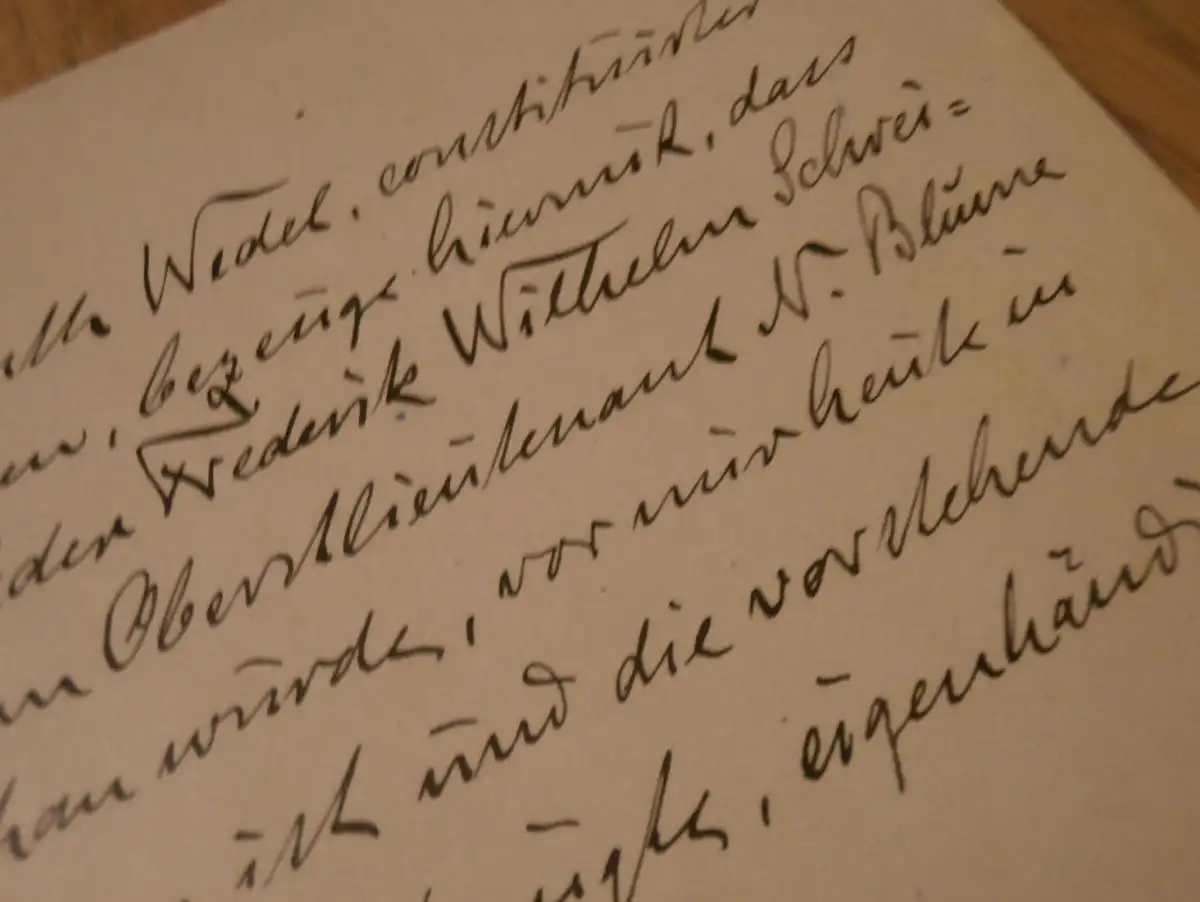 Wedel, constituirter
bezeuge hiermit, dass
Frederik Wilhelm Schwei=
Oberstlieutenant N. Blume
han würde, vor mir heute in
ist und die vorstehende
eigenhändi